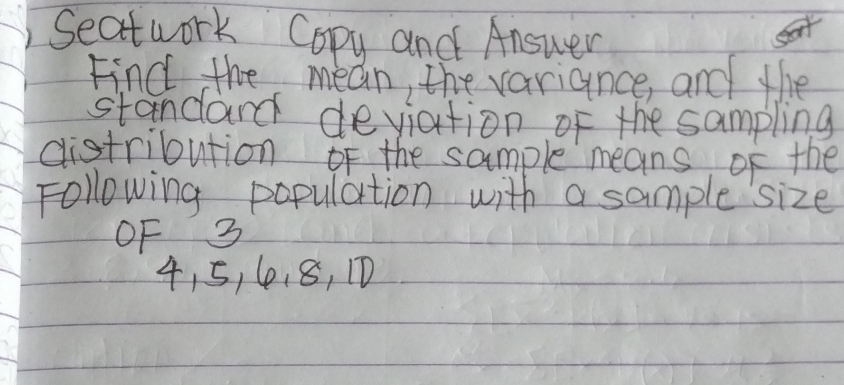 Seatwork Copy and Answer
Find the mean, the variance, and the
standard deviation of the sampling
distribution of the sample means of the
Following population with a sample size
OF 3
4, 5, 6, 8, 10